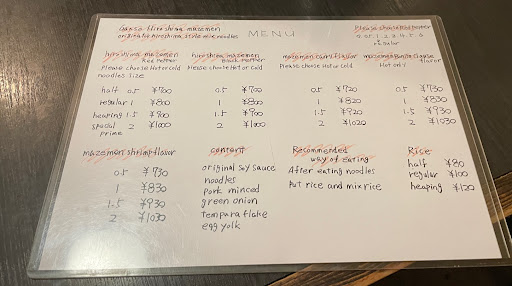 Ganso Hiroshima mazemen
original for Hiroshima style mix noodles
MENU
Please choose Red Pepper
0. 0.5. 1. 2. 3. 4. 5. 6
regular
hiroshima mazemen
Red Pepper
Please choose Hot or cold
noodles size
half 0.5 ¥700
regular 1 ¥800
heaping 1.5 ¥900
special 2 ¥1000
prime
hiroshima mazemen
Black Pepper
Please choose Hot or Cold
0.5 ¥700
1 ¥800
1.5 ¥900
2 ¥1000
mazemen curry flavor
Please choose Hot or cold
0.5 ¥720
1 ¥820
1.5 ¥920
2 ¥1020
flavor
Hot only
0.5 ¥730
1 ¥830
1.5 ¥930
2 ¥1030
mazemen shrimp flavor
0.5 ¥730
1 ¥830
1.5 ¥930
2 ¥1030
content
original soy sauce
noodles
Pork minced
green onion
Tempura flake
egg yolk
Recommended
way of eating
After eating noodles
Put rice and mix rice
Rice
half ¥80
regular ¥100
heaping ¥120